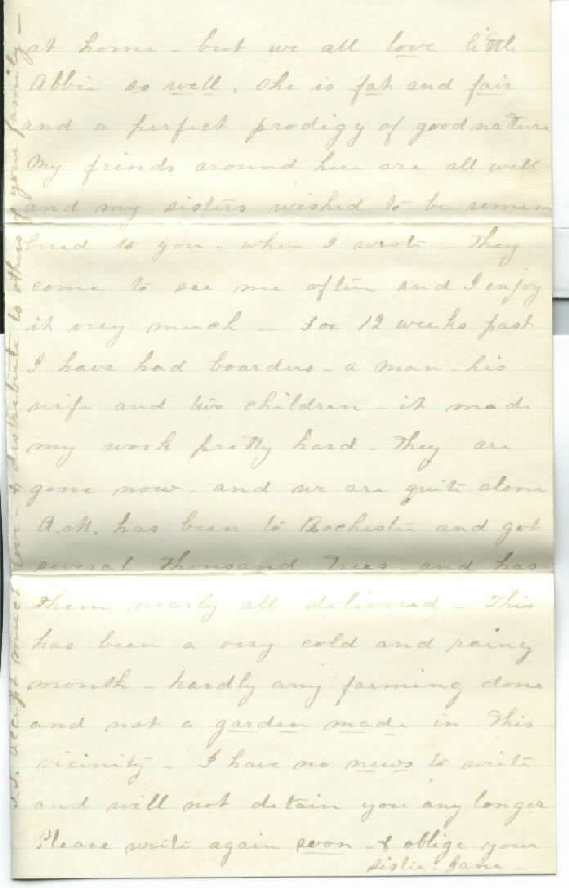 at home - but we all love little
Abbie so well. She is fat and fair
and a perfect prodigy of good nature
My friends around here are all well
and my sisters wished to be remem
bered to you - when I wrote - They
come to see me often and I enjoy
it very much - For 12 weeks past
I have had boarders - a man - his
wife and two children - it made
my work pretty hard - They are
gone now - and we are quite alone
A.M. has been to Rochester and got
several Thousand Trees - and has
them nearly all delivered - This
has been a very cold and rainy
month - hardly any farming done
and not a garden made in This
vicinity - I have no news to write
and will not detain you any longer
Please write again soon - & oblige your
sister Jane -
accept much love - & distribute to others of your family -